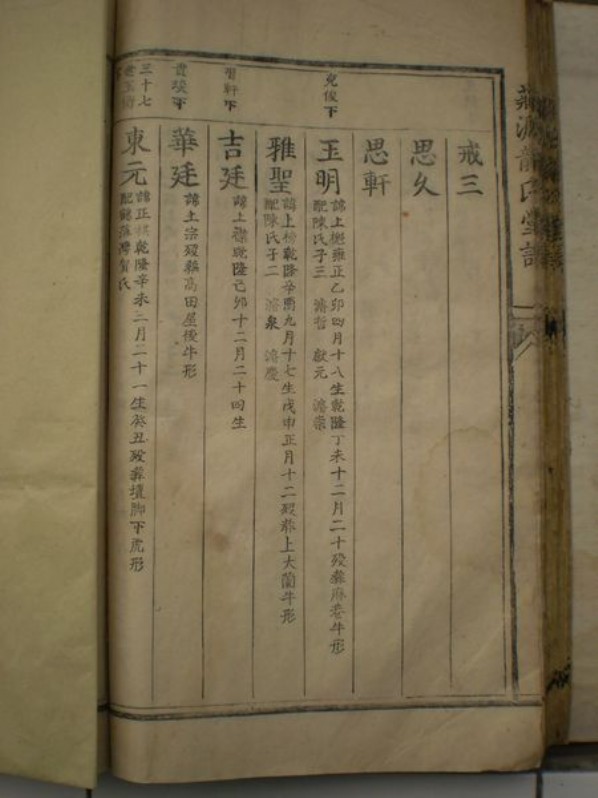 龍氏
戒三
思久
思軒
兌俊下
玉明
諱上 雍正乙卯四月十八生乾隆丁未十二月二十歿葬麻 牛形
配陳氏子三 鴻哲 獻元 鴻業
雅聖
諱上 乾隆辛酉九月十七生戊申正月十二歿葬上大蘭牛形
配陳氏子二 鴻泉 鴻慶
習軒下
吉廷
諱上 乾隆己卯十二月二十四生
貢瑛下
華廷
諱上宗歿葬高田屋後牛形
三十七
東元
諱正 乾隆辛未二月二十一生癸丑歿葬壇脚下虎形
賀氏